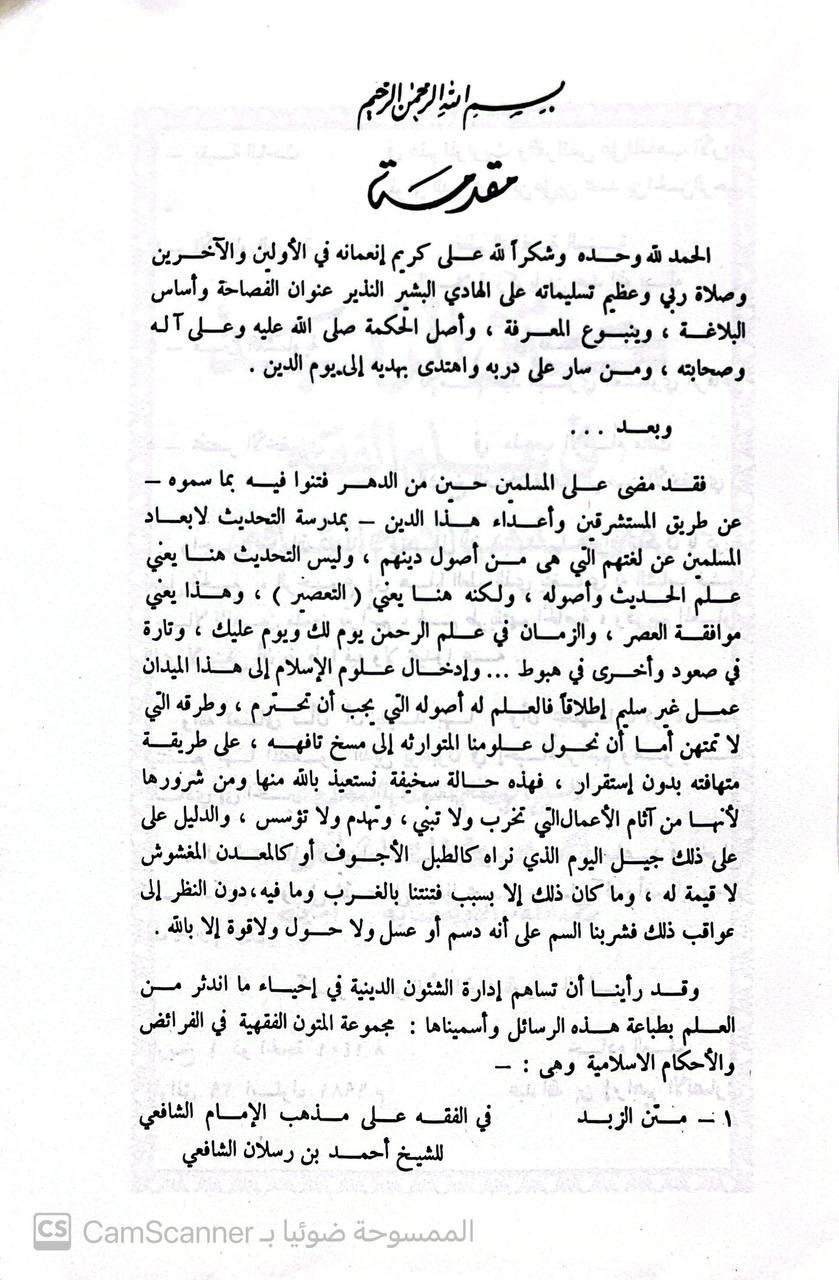 بسم الله الرحمن الرحيم
مقدمة
الحمد لله وحده وشكراً لله على كريم إنعمانه في الأولين والآخرين
وصلاة ربي وعظيم تسليماته على الهادي البشير النذير عنوان الفصاحة وأساس
البلاغة ، وينبوع المعرفة ، وأصل الحكمة صلى الله عليه وعلى آله
وصحابته ، ومن سار على دربه واهتدى بهديه إلى يوم الدين .
وبعد ...
فقد مضى على المسلمين حين من الدهر فتنوا فيه بما سموه –
عن طريق المستشرقين وأعداء هذا الدين – بمدرسة التحديث لابعاد
المسلمين عن لغتهم التي هى من أصول دينهم ، وليس التحديث هنا يعني
علم الحديث وأصوله ، ولكنه هنا يعني ( التعصير ) ، وهذا يعني
موافقة العصر ، والزمان في علم الرحمن يوم لك ويوم عليك ، وتارة
في صعود وأخرى في هبوط ... وإدخال علوم الإسلام إلى هذا الميدان
عمل غير سليم إطلاقاً فالعلم له أصوله التي يجب أن تحترم ، وطرقه التي
لا تمتهن أما أن نحول علومنا المتوارثه إلى مسخ تافهه ، على طريقة
متهافته بدون إستقرار ، فهذه حالة سخيفة نستعيذ بالله منها ومن شرورها
لأنها من آثام الأعمال التي تخرب ولا تبني ، وتهدم ولا تؤسس ، والدليل على
على ذلك جيل اليوم الذي نراه كالطبل الأجوف أو كالمعدن المغشوش
لا قيمة له ، وما كان ذلك إلا بسبب فتنتنا بالغرب وما فيه، دون النظر إلى
عواقب ذلك فشربنا السم على أنه دسم أو عسل ولا حول ولاقوة إلا بالله .
وقد رأينا أن تساهم إدارة الشئون الدينية في إحياء ما اندثر من
العلم بطباعة هذه الرسائل وأسميناها : مجموعة المتون الفقهية في الفرائض
والأحكام الاسلامية وهى : –
١ – متن الزبد في الفقه على مذهب الإمام الشافعي
للشيخ أحمد بن رسلان الشافعي
CS CamScanner الممسوحة ضوئيا بـ